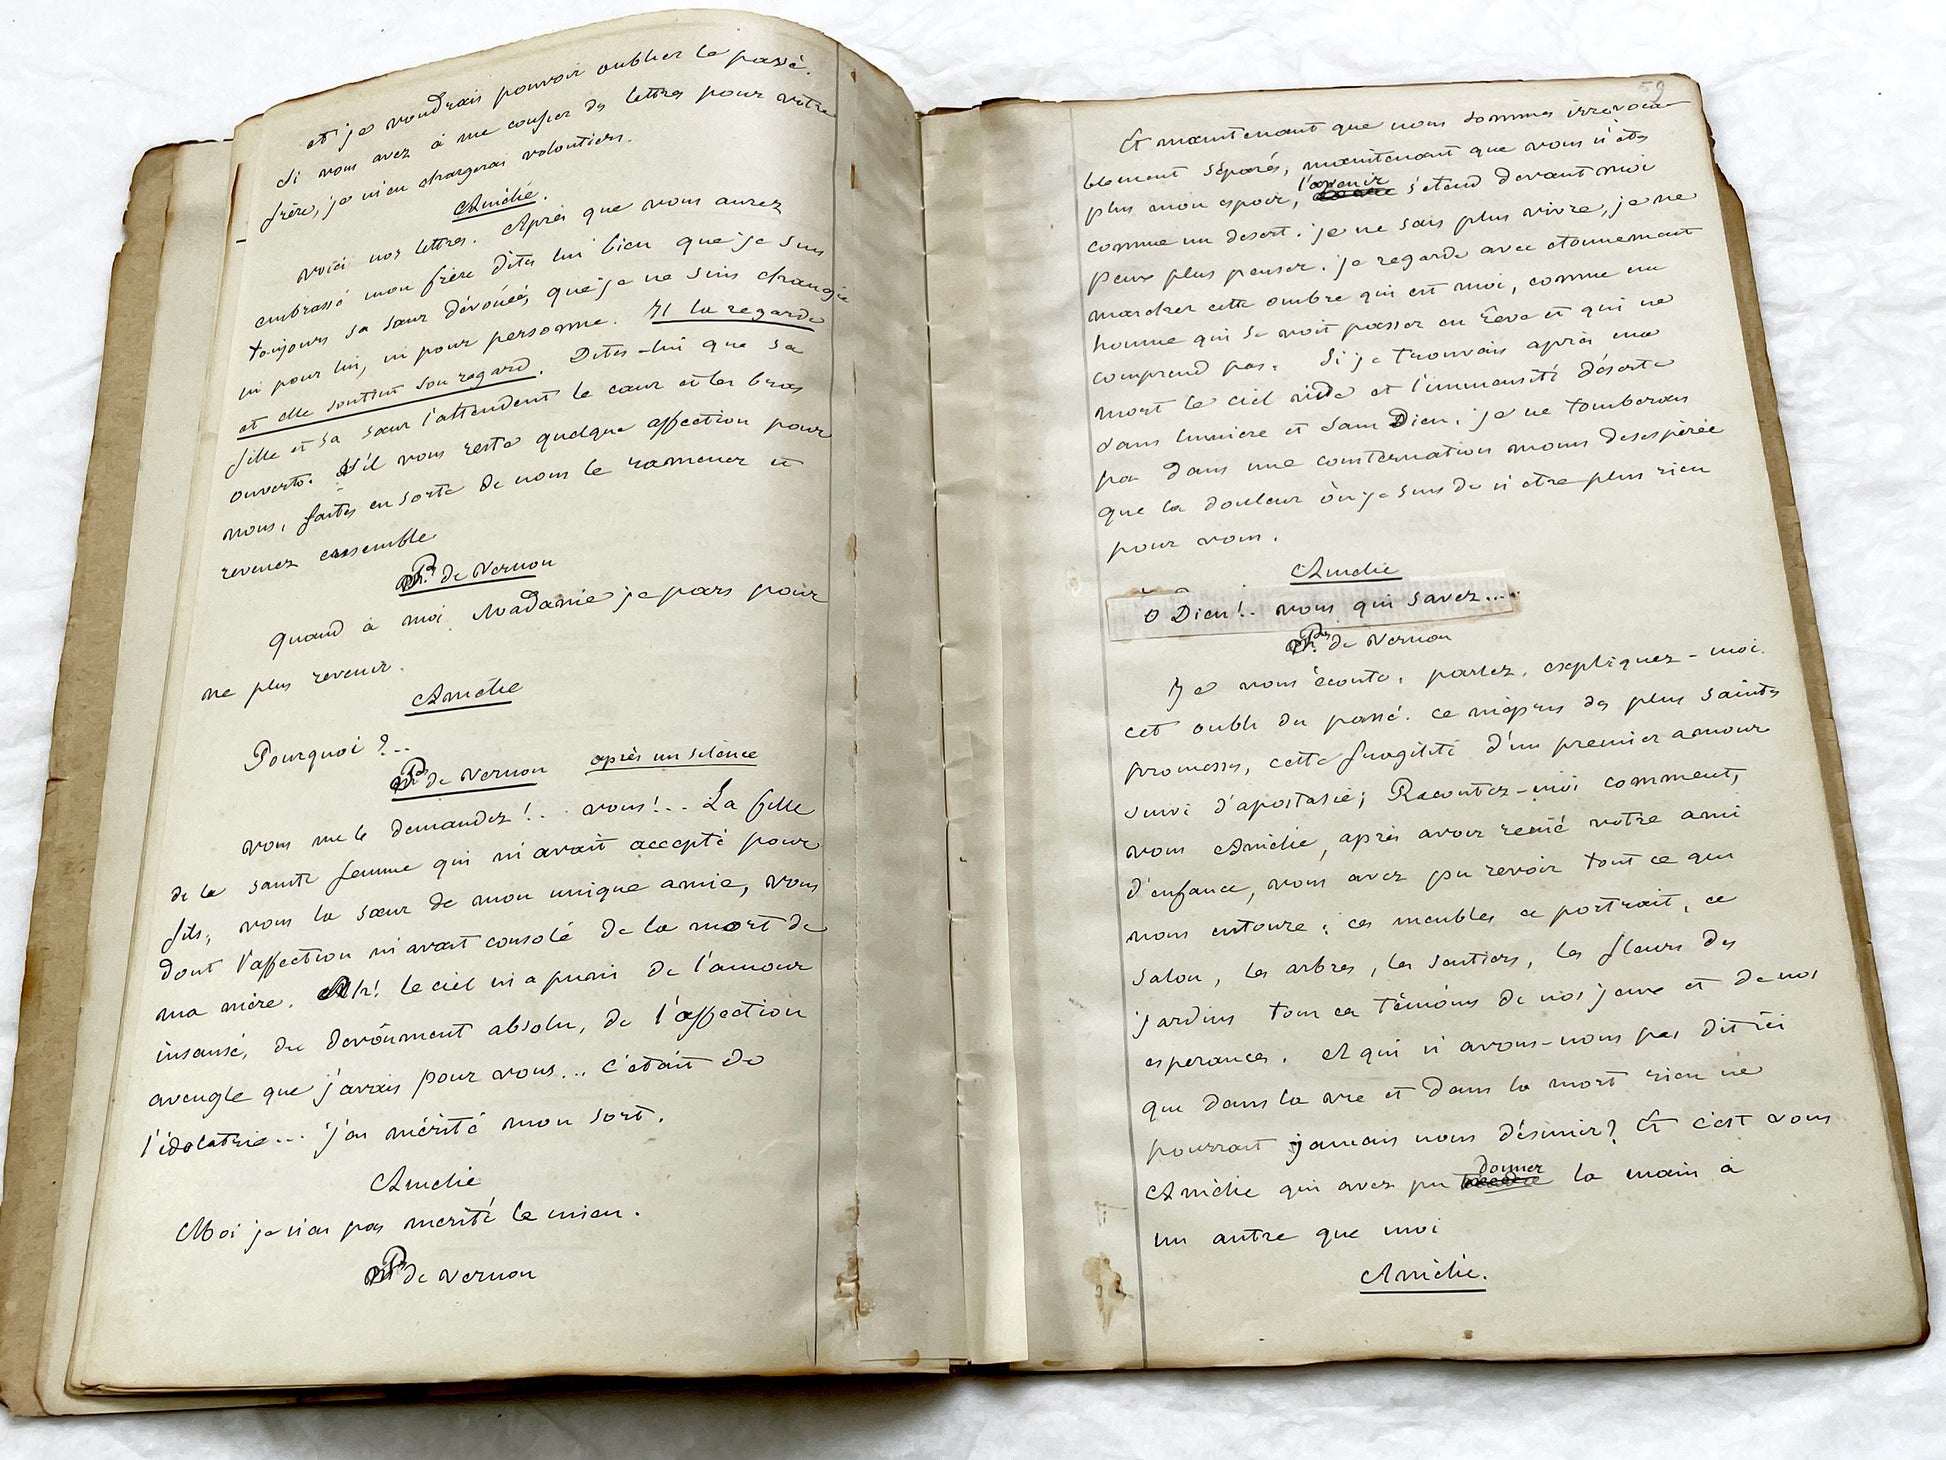 et je voudrais pouvoir oublier le passé.
Si vous avez à me confier des lettres pour votre
frère, je m'en chargerai volontiers.
Amélie.
Voici nos lettres. Après que vous aurez
embrassé mon frère dites lui bien que je suis
toujours sa sœur dévouée, que je ne suis changée
ni pour lui, ni pour personne. Il la regarde
et elle soutient son regard. Dites-lui que sa
fille et sa sœur l'attendent le cœur et les bras
ouverts. S'il vous reste quelque affection pour
nous, faites en sorte de nous le ramener et
revenez ensemble
de Vernon
Quand à moi Madame je pars pour
ne plus revenir.
Amélie
Pourquoi ?..
de Vernon après un silence
Vous me le demandez !.. vous !.. La fille
de la sainte femme qui m'avait accepté pour
fils, vous la sœur de mon unique amie, vous
dont l'affection m'avait consolé de la mort de
ma mère. Ah! le ciel m'a puni de l'amour
insensé, du dévoûment absolu, de l'affection
aveugle que j'avais pour vous... c'était de
l'idolatrie... j'ai mérité mon sort.
Amélie
Moi je n'ai pas mérité le mien.
de Vernon
59
Et maintenant que nous sommes irrévoca-
blement séparés, maintenant que vous n'êtes
plus mon espoir, l'avenir s'étend devant moi
comme un desert. je ne sais plus vivre, je ne
peux plus penser. je regarde avec etonnement
marcher cette ombre qui est moi, comme un
homme qui se voit passer en rêve et qui ne
comprend pas. Si je trouvais après ma
mort le ciel vide et l'immensité déserte
sans lumiere et sans Dieu, je ne tomberais
pas dans une consternation moins desespérée
que la douleur où je suis de n'etre plus rien
pour vous.
Amélie
O Dieu!.. vous qui savez....
de Vernon
Je vous écoute, parlez, expliquez-moi
cet oubli du passé. ce mépris des plus saintes
promesses, cette fragilité d'un premier amour
suivi d'apostasie; Racontez-moi comment,
vous Amélie, après avoir renié votre ami
d'enfance, vous avez pu revoir tout ce qui
nous entoure; ces meubles ce portrait, ce
salon, les arbres, les sentiers, les fleurs des
jardins tous ces témoins de nos jeux et de nos
esperances. et qui n'avons-nous pas dit ici
que dans la vie et dans la mort rien ne
pourrait jamais nous désunir? Et c'est vous
Amélie qui avez pu donner la main à
un autre que moi
Amélie.